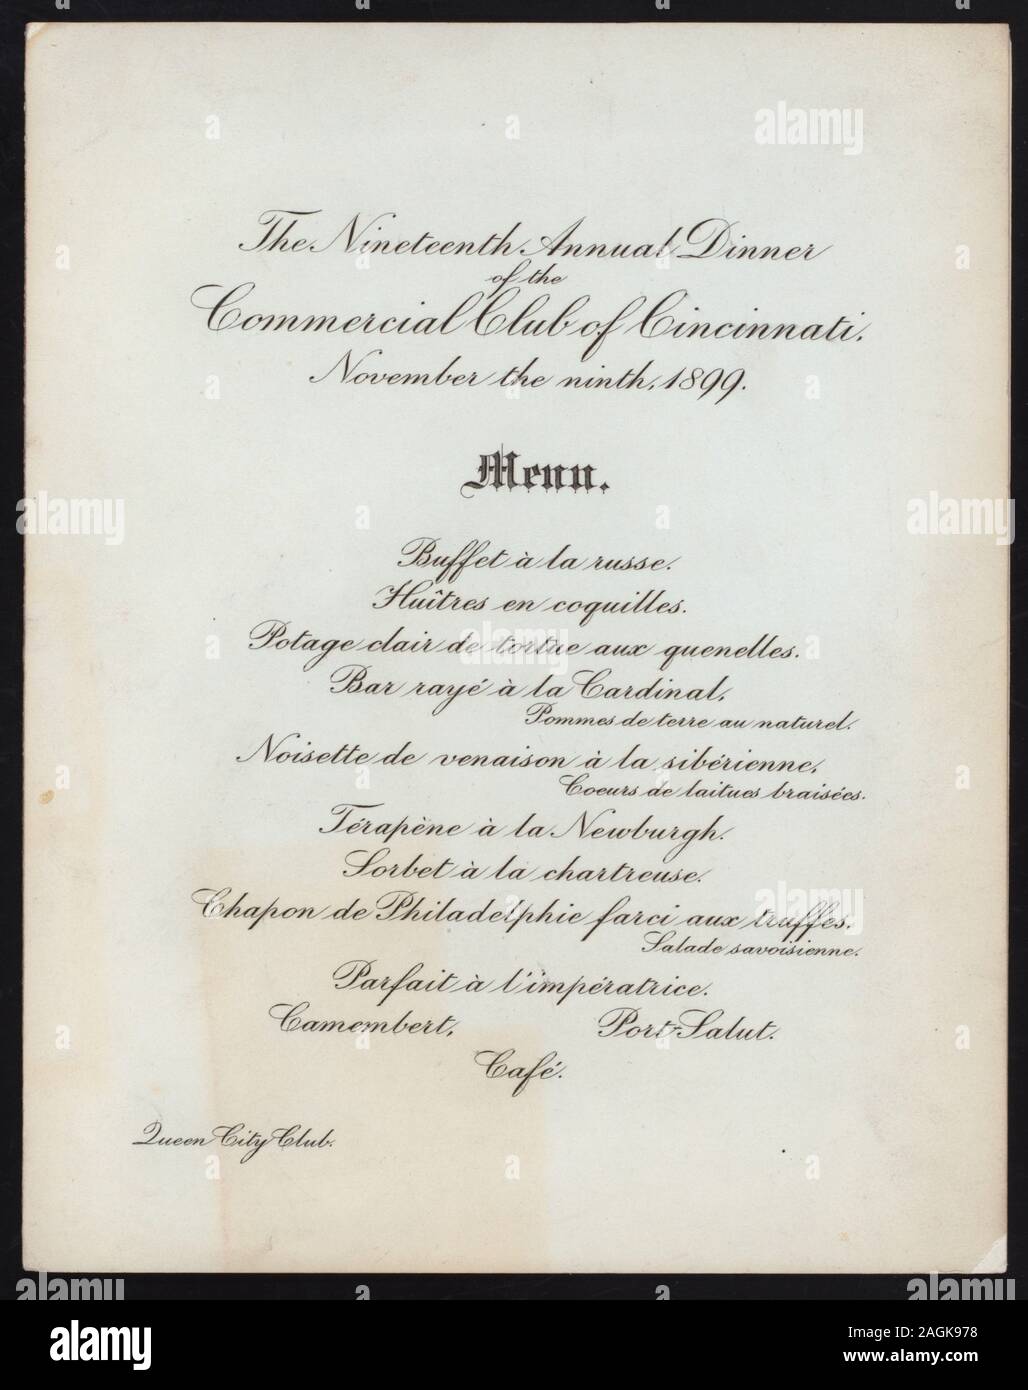 The Nineteenth Annual Dinner
of the
Commercial Club of Cincinnati,
November the ninth, 1899.
Menu.
Buffet à la russe.
Huîtres en coquilles.
Potage clair de tortue aux quenelles.
Bar rayé à la Cardinal,
Pommes de terre au naturel.
Noisette de venaison à la sibérienne,
Coeurs de laitues braisées.
Térapène à la Newburgh.
Sorbet à la chartreuse.
Chapon de Philadelphie farci aux truffes,
Salade savoisienne.
Parfait à l'impératrice.
Camembert, Port-Salut.
Café.
Queen City Club.
alamy
Image ID: 2AGK978
www.alamy.com